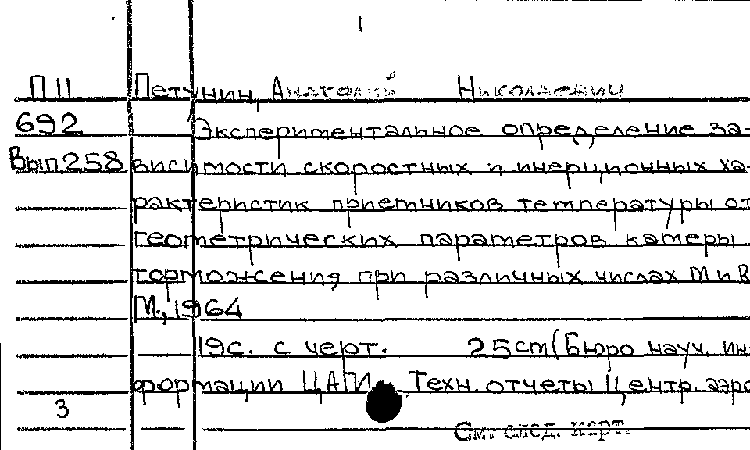 П 11 Петунин, Анатолий Николаевич
692 Экспериментальное определение за-
Вып.258 висимости скоростных и инерционных ха-
рактеристик приемников температуры от
геометрических параметров камеры
торможения при различных числах М и В
М., 1964
19с. с черт. 25 cm (Бюро науч. ин-
формации ЦАГИ. Техн. отчеты Центр. аэро
3
См. след. карт.